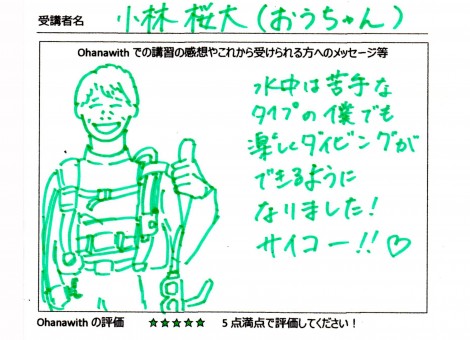 受講者名 小林 桜大(おうちゃん)
Ohanawith での講習の感想やこれから受けられる方へのメッセージ等
水中は苦手な
タイプの僕でも
楽しくダイビングが
できるように
なりました!
サイコー!!♡
Ohanawith の評価 ★★★★★ 5 点満点で評価してください!